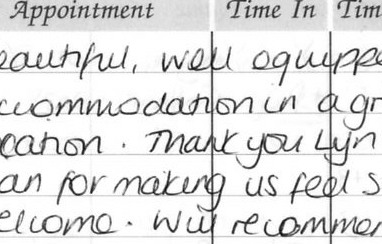 Appointment Time In Tim
eautiful, well equippe
ccommodation in a gr
cation. Thank you Lyn
an for making us feel s
elcome. Will recommen